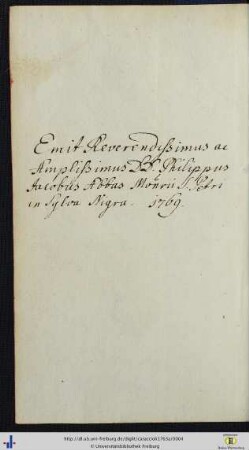 Emit Reverendissimus ac
Amplissimus D. D. Philippus
Jacobus Abbas Monrii S. Petri
in Sylva Nigra. 1769.
http://dl.ub.uni-freiburg.de/diglit/
© Universitätsbibliothek Freiburg